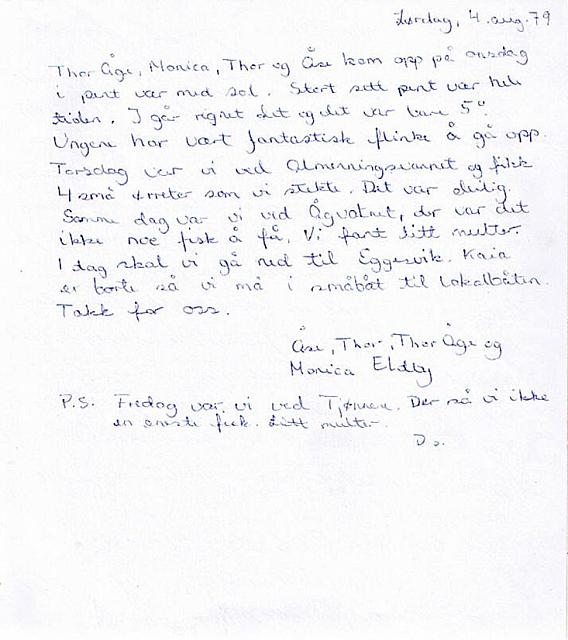 Lørdag, 4. aug. 79
Thor Åge, Monica, Thor og Åse kom opp på onsdag
i pent vær med sol. Stort sett pent vær hele
tiden. I går regnet det og det var bare 5°.
Ungene har vært fantastisk flinke å gå opp.
Torsdag var vi ved Almenningsvannet og fikk
4 små ørreter som vi stekte. Det var deilig.
Samme dag var vi ved Ågvatnet, der var det
ikke noe fisk å få. Vi fant litt multer.
I dag skal vi gå ned til Eggesvik. Kaia
er borte så vi må i småbåt til lokalbåten.
Takk for oss.
Åse, Thor, Thor Åge og
Monica Eldby
P.S. Fredag var vi ved Tjønnen. Der så vi ikke
en eneste fisk. Litt multer.
Ds.